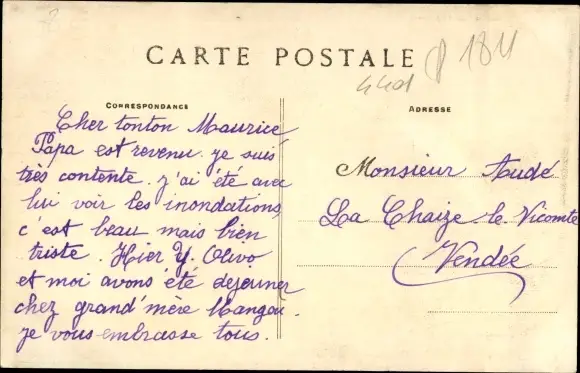 CARTE POSTALE
1811
CORRESPONDANCE
ADRESSE
Cher tonton Maurice
Papa est revenu. je suis
très contente. j'ai été avec
lui voir les inondations,
c'est beau mais bien
triste. Hier Y. Olivo
et moi avons été dejeuner
chez grand'mère Mangou.
je vous embrasse tous.
Monsieur Audé
La Chaize le Vicomte
Vendée